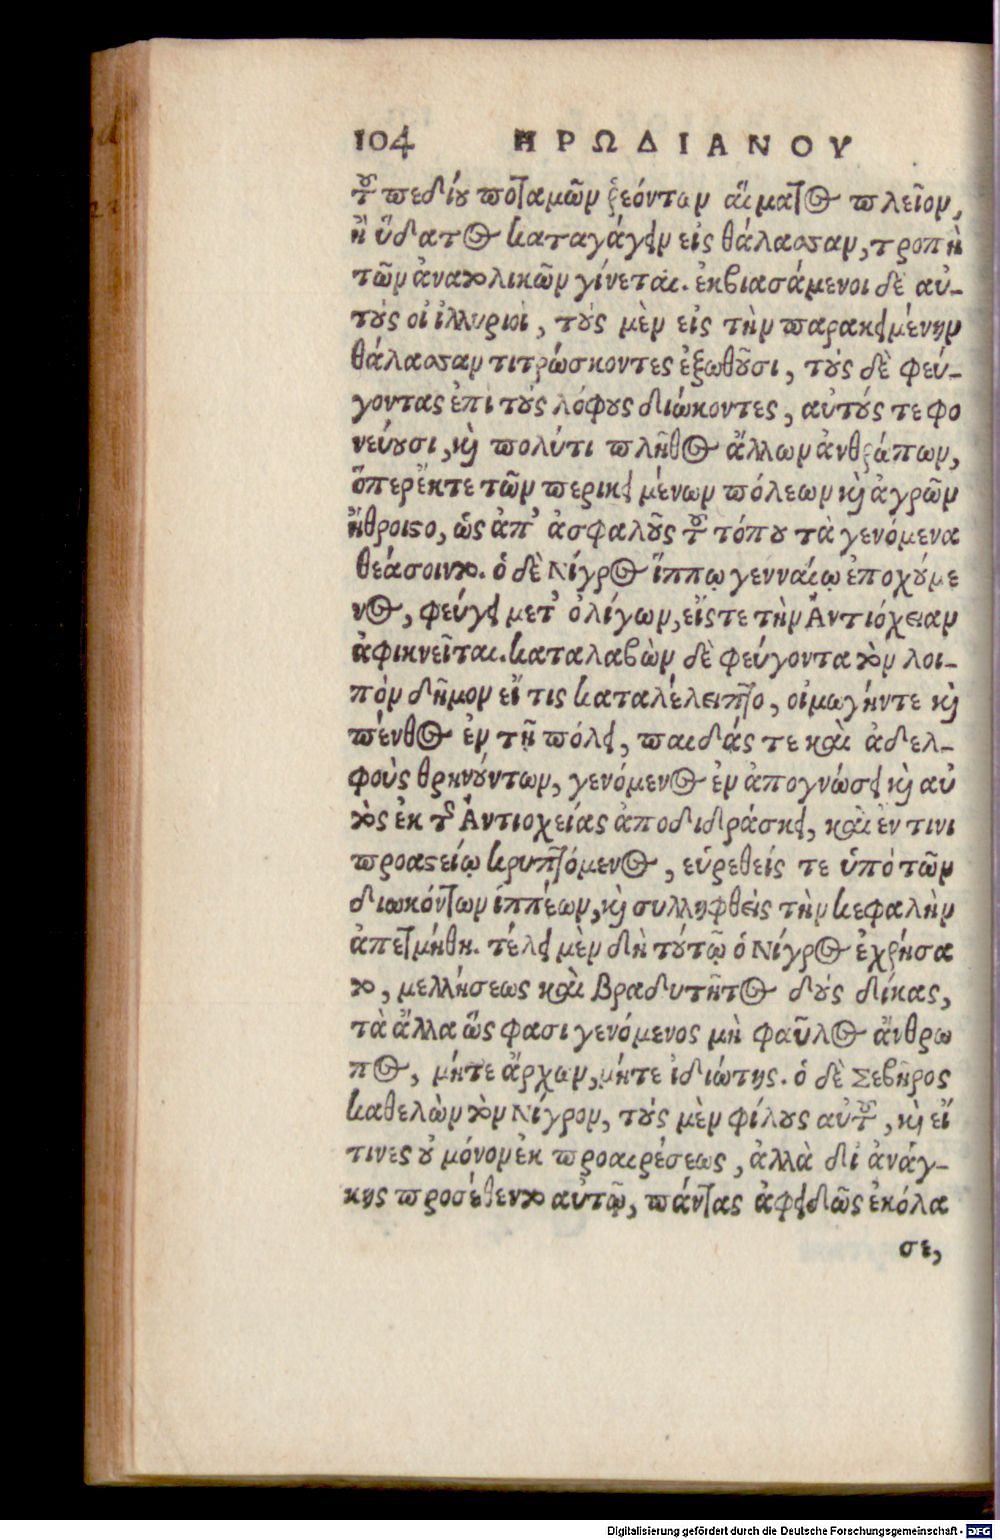 104 ΗΡΩΔΙΑΝΟΥ
τοῦ πεδίου ποταμῶν ῥεόντων αἵματος πλεῖον,
ἢ ὕδατος καταγάγειν εἰς θάλασσαν, τροπὴ
τῶν ἀνατολικῶν γίνεται. ἐκβιασάμενοι δὲ αὐ-
τοὺς οἱ ἰλλυριοὶ, τοὺς μὲν εἰς τὴν παρακειμένην
θάλασσαν τιτρώσκοντες ἐξωθοῦσι, τοὺς δὲ φεύ-
γοντας ἐπὶ τοὺς λόφους διώκοντες, αὐτούς τε φο
νεύουσι, καὶ πολύ τι πλῆθος ἄλλων ἀνθρώπων,
ὅπερ ἔκ τε τῶν περικειμένων πόλεων καὶ ἀγρῶν
ἤθροιστο, ὡς ἀπ' ἀσφαλοῦς τοῦ τόπου τὰ γενόμενα
θεάσοιντο. ὁ δὲ Νίγρος ἵππῳ γενναίῳ ἐποχούμε
νος, φεύγει μετ' ὀλίγων, εἴς τε τὴν Ἀντιόχειαν
ἀφικνεῖται. καταλαβὼν δὲ φεύγοντα τὸν λοι-
πὸν δῆμον εἴ τις καταλέλειπτο, οἰμωγήν τε καὶ
πένθος ἐν τῇ πόλει, παιδάς τε καὶ ἀδελ-
φοὺς θρηνούντων, γενόμενος ἐν ἀπογνώσει καὶ αὐ
τὸς ἐκ τῆς Ἀντιοχείας ἀποδιδράσκει, καὶ ἔν τινι
προαστείῳ κρυπτόμενος, εὑρεθείς τε ὑπὸ τῶν
διωκόντων ἱππέων, καὶ συλληφθεὶς τὴν κεφαλὴν
ἀπετμήθη. τέλει μὲν δὴ τούτῳ ὁ Νίγρος ἐχρήσα
το, μελλήσεως καὶ βραδυτῆτος δοὺς δίκας,
τὰ ἄλλα ὥς φασι γενόμενος μὴ φαῦλος ἄνθρω
πος, μήτε ἄρχων, μήτε ἰδιώτης. ὁ δὲ Σεβῆρος
καθελὼν τὸν Νίγρον, τοὺς μὲν φίλους αὐτοῦ, καὶ εἴ
τινες οὐ μόνον ἐκ προαιρέσεως, ἀλλὰ δι ἀνάγ-
κης προσέθεντο αὐτῷ, πάντας ἀφειδῶς ἐκόλα
σε,
Digitalisierung gefördert durch die Deutsche Forschungsgemeinschaft - DFG